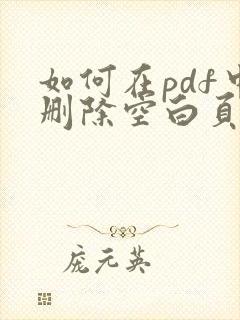 如何在pdf中
删除空白頁
庞元英